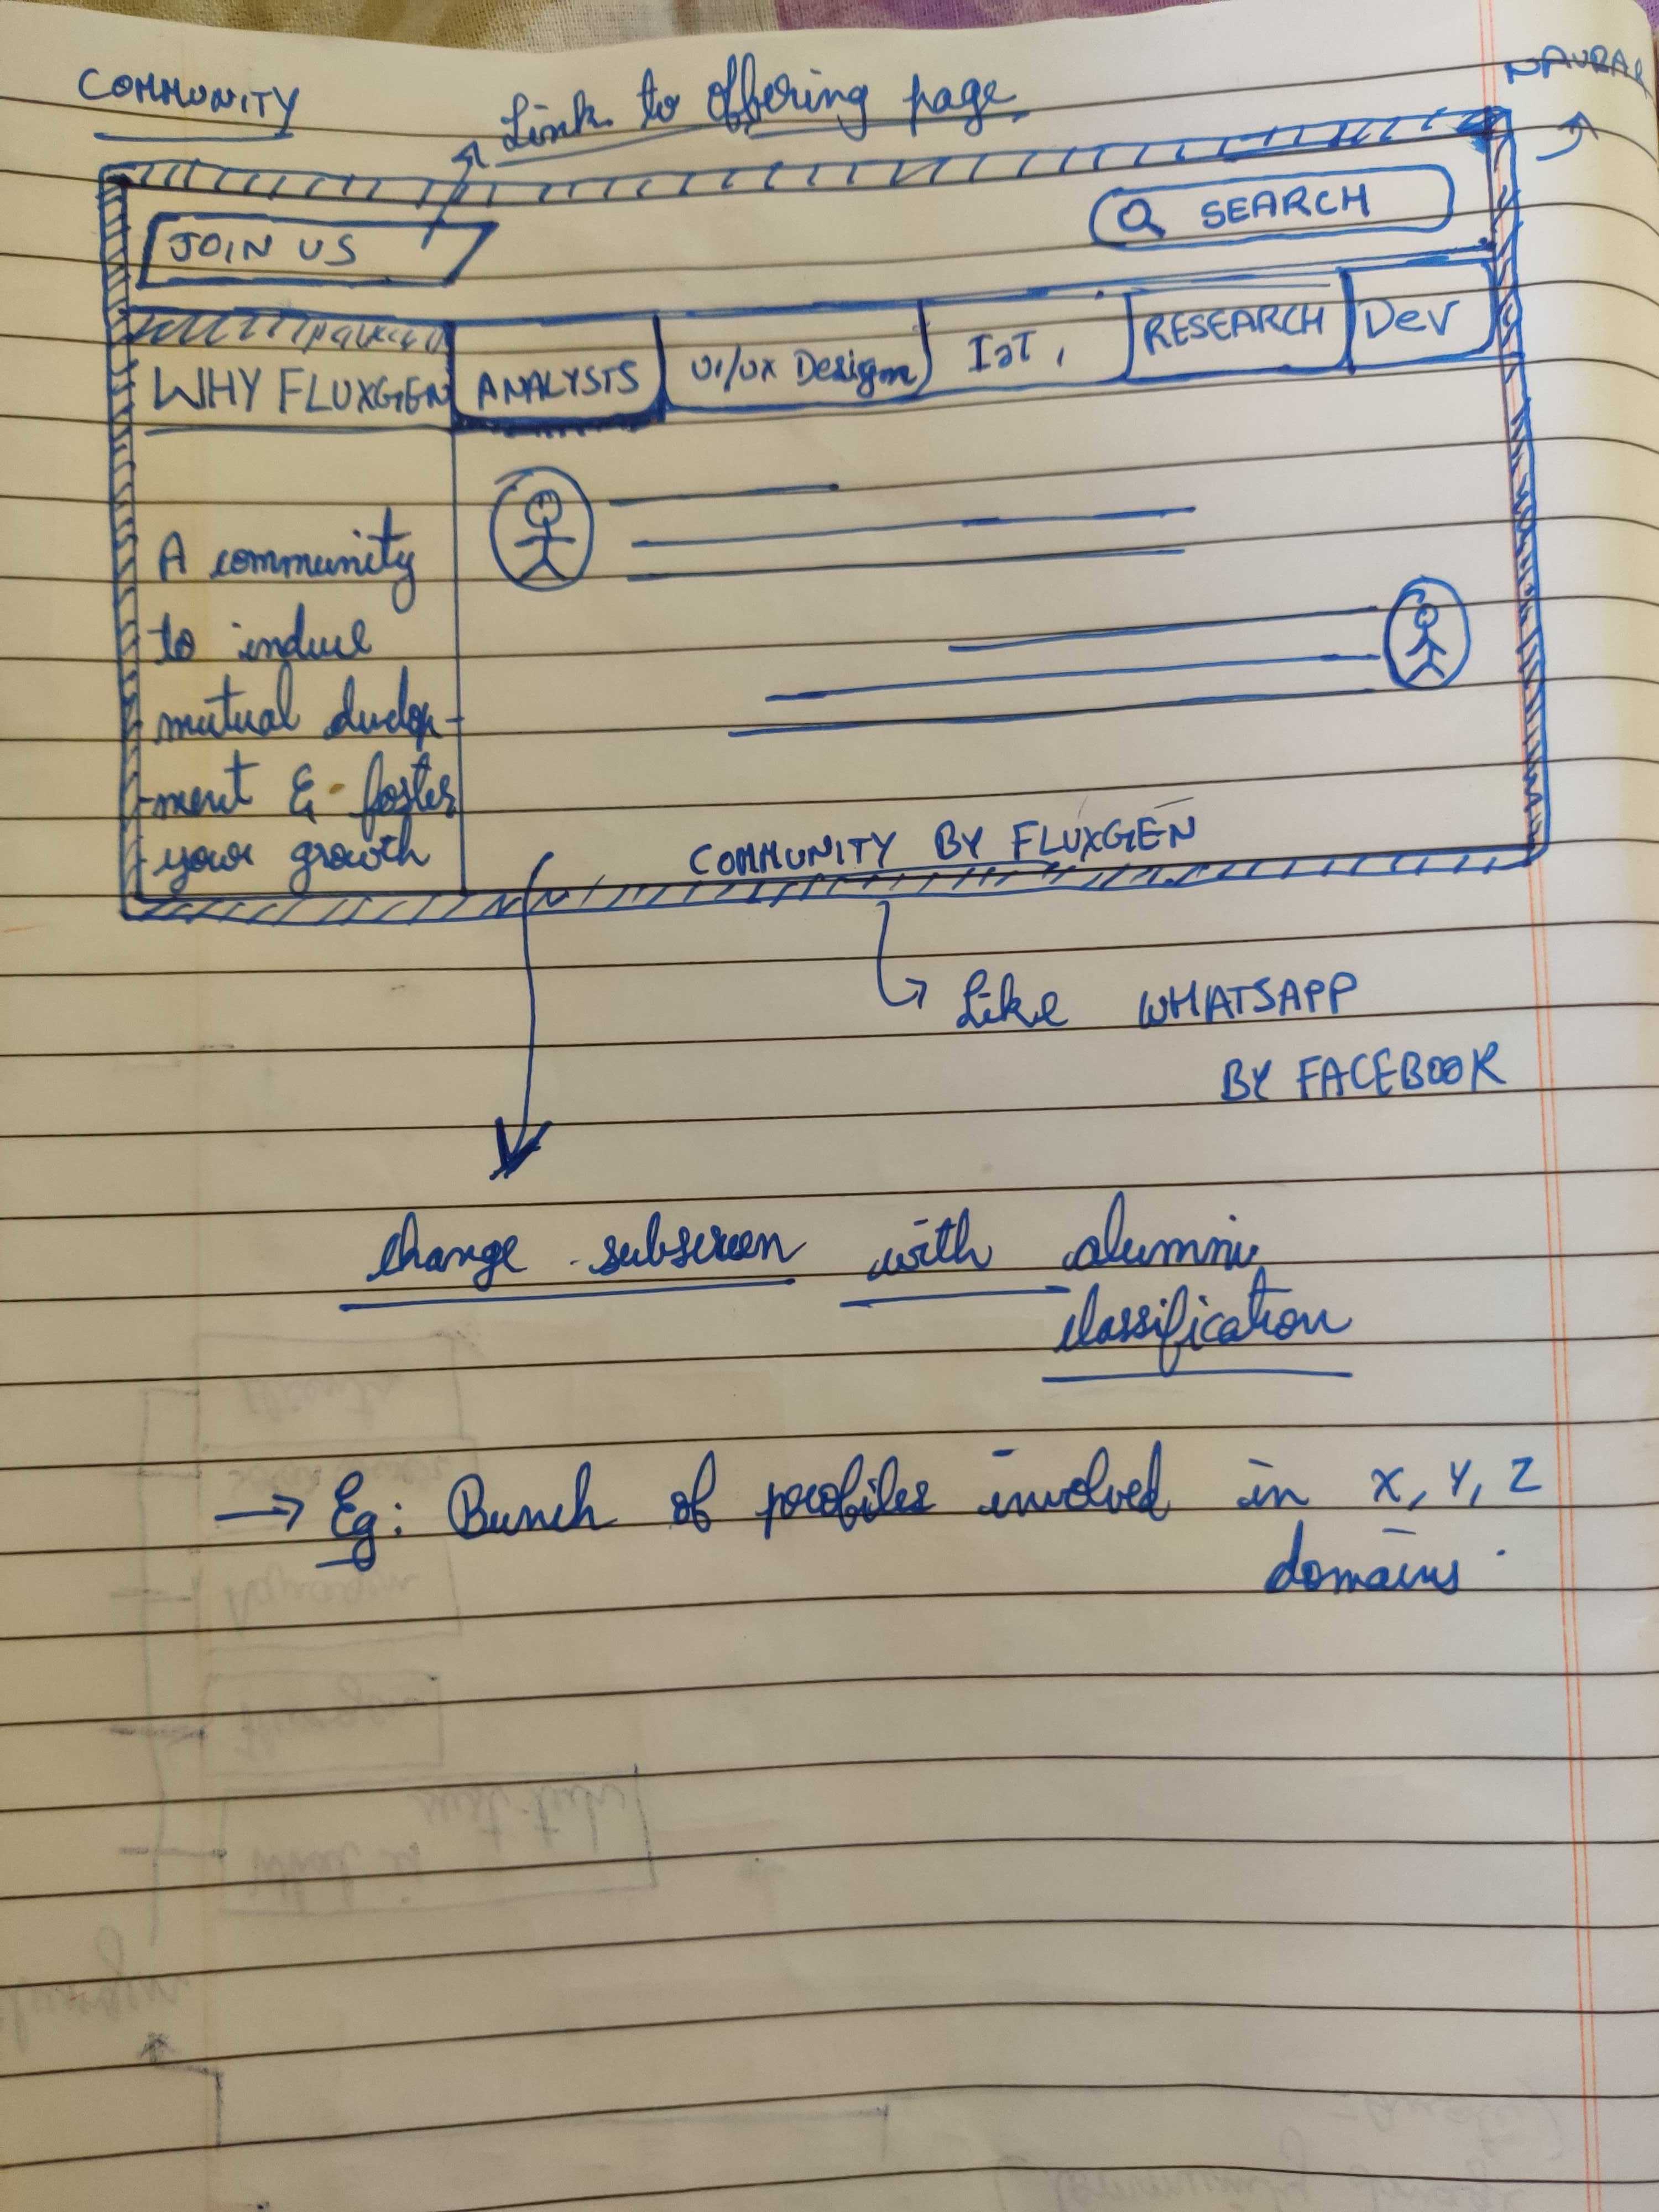 COMMUNITY
Link to offering page
NAVBAR
JOIN US
SEARCH
WHY FLUXGEN
ANALYSTS
UI/UX Design
IoT,
RESEARCH
Dev
A community
to induce
mutual develop-
ment & foster
your growth
COMMUNITY BY FLUXGEN
Like WHATSAPP
BY FACEBOOK
change subscreen with alumni
classification
→ Eg: Bunch of profiles involved in X, Y, Z
domains.